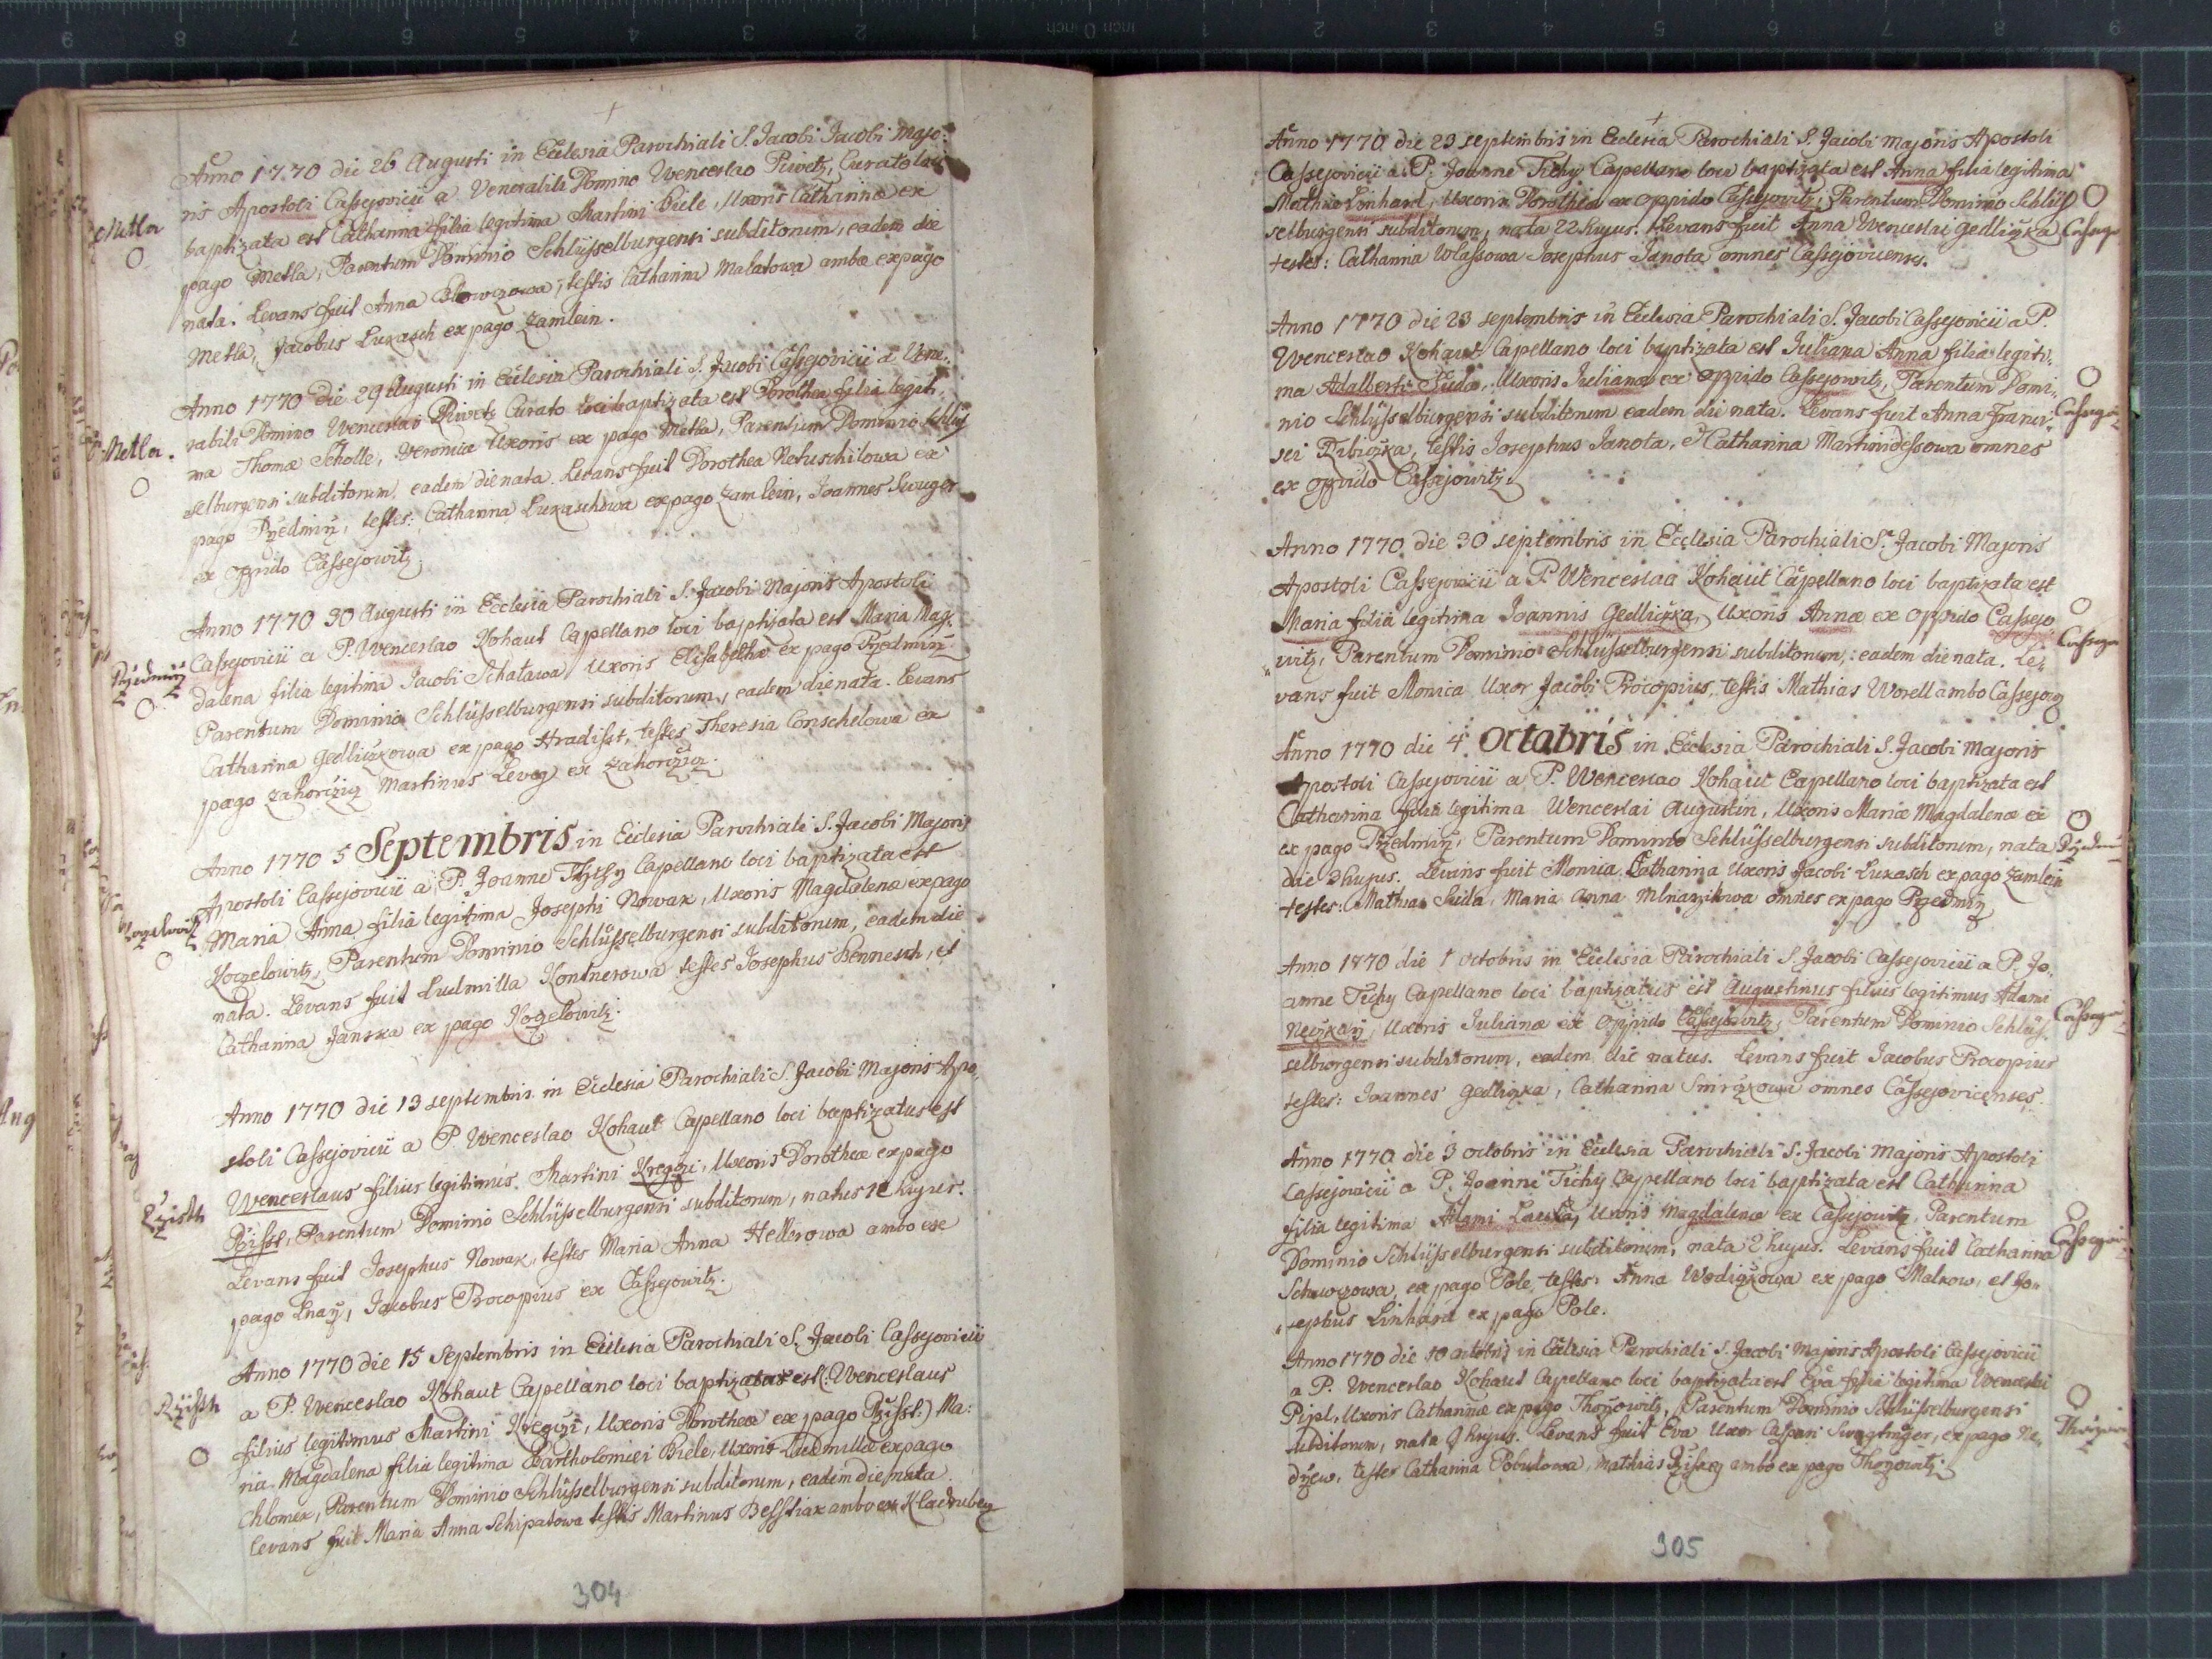 Anno 1770 die 26 Augusti in Ecclesia Parochiali S. Jacobi Jacobi Majo:
ris Apostoli Cassejovicii a Venerabili Domino Wenceslao Piwetz, Curato loci
baptizata est Catharina filia legitima Martini Biele, Uxoris Catharinæ ex
pago Metla, Parentum Dominio Schlüsselburgensi subditorum, eadem die
nata. Levans fuit Anna testis Catharina Malatowa ambæ ex pago
Metla, Jacobus Lukasch ex pago Zamlein.
Metla
Anno 1770 die 29 Augusti in Ecclesia Parochiali S. Jacobi Cassejovicii a Vene:
rabili Domino Wenceslao Piwetz Curato loci baptizata est Dorothea filia legiti:
ma Thomæ Scholle, Veronicæ Uxoris ex pago Metla, Parentum Dominio Schlüs
selburgensi subditorum, eadem die nata. Levans fuit Dorothea Netuschilowa ex
pago Pržedmirž, testes: Catharina Lukaschowa ex pago Zamlein, Joannes
ex oppido Cassejowitz.
Metla.
Anno 1770 30 Augusti in Ecclesia Parochiali S. Jacobi Majoris Apostoli
Cassejovicii a P. Wenceslao Kohaut Capellano loci baptizata est Maria Mag:
dalena filia legitima Jacobi Schatawa, Uxoris Elisabethæ ex pago Pržedmirž
Parentum Dominio Schlüsselburgensi subditorum, eadem die nata. Levans
Catharina Gedlicžkowa ex pago Hradisst, testes Theresia Conschelowa ex
pago Zahoržicz Martinus Levey ex Zahoržicz.
Anno 1770 5 Septembris in Ecclesia Parochiali S. Jacobi Majoris
Apostoli Cassejovicii a P. Joanne Tychy Capellano loci baptizata est
Maria Anna filia legitima Josephi Nowak, Uxoris Magdalenæ ex pago
Kozelowitz, Parentum Dominio Schlüsselburgensi subditorum, eadem die
nata. Levans fuit Ludmilla Kontnerowa testes Josephus Bennesch, et
Catharina Janska ex pago Kozelowitz.
Anno 1770 die 13 septembris in Ecclesia Parochiali S. Jacobi Majoris Apo:
stoli Cassejovicii a P. Wenceslao Kohaut Capellano loci baptizatus est
Wenceslaus filius legitimus Martini Kregczi, Uxoris Dorotheæ ex pago
Ržisst, Parentum Dominio Schlüsselburgensi subditorum, natus 12 hujus.
Levans fuit Josephus Nowak, testes Maria Anna Hellerowa ambo ex
pago Lnarž, Jacobus Procopius ex Cassejowitz.
Anno 1770 die 15 Septembris in Ecclesia Parochiali S. Jacobi Cassejovicii
a P. Wenceslao Kohaut Capellano loci est (: Wenceslaus
filius legitimus Martini Kregczi, Uxoris Dorotheæ ex pago Ržisst:) Ma:
ria Magdalena filia legitima Bartholomæi Biele, Uxoris Ludmillæ ex pago
Chlomek, Parentum Dominio Schlüsselburgensi subditorum, eadem die nata
Levans fuit Maria Anna Schipatowa testis Martinus Besstiak ambo ex Kladrubcy
304
Anno 1770 die 23 septembris in Ecclesia Parochiali S. Jacobi Majoris Apostoli
Cassejovicii a P. Joanne Tichy Capellano loci baptizata est Anna filia legitima
Mathiæ Linhard, Uxoris Dorotheæ ex oppido Cassejowitz, Parentum Dominio Schlüs
selburgensi subditorum, nata 22 hujus. Levans fuit Anna Wenceslai Gedlicžka
testes: Catharina Wlassowa Josephus Janota omnes Cassejovicenses.
Anno 1770 die 23 septembris in Ecclesia Parochiali S. Jacobi Cassejovicii a P.
Wenceslao Kohaut Capellano loci baptizata est Juliana Anna filia legiti:
ma Adalberti Uxoris Julianæ ex oppido Cassejowitz, Parentum Domi:
nio Schlüsselburgensi subditorum eadem die nata. Levans fuit Anna Franci:
sci testis Josephus Janota, et Catharina omnes
ex oppido Cassejowitz.
Anno 1770 die 30 septembris in Ecclesia Parochiali S. Jacobi Majoris
Apostoli Cassejovicii a P. Wenceslao Kohaut Capellano loci baptizata est
Maria filia legitima Joannis Gedlicžka, Uxoris Annæ ex oppido Cassejo
witz, Parentum Dominio Schlüsselburgensi subditorum, eadem die nata. Le:
vans fuit Monica Uxor Jacobi Procopius, testis Mathias Worell ambo Cassejov
Anno 1770 die 4 Octobris in Ecclesia Parochiali S. Jacobi Majoris
Apostoli Cassejovicii a P. Wenceslao Kohaut Capellano loci baptizata est
Catharina filia legitima Wenceslai Augustin, Uxoris Mariæ Magdalenæ ex
ex pago Pržedmirž, Parentum Dominio Schlüsselburgensi subditorum, nata
die 3 hujus. Levans fuit Monica Catharina Uxoris Jacobi Lukasch ex pago Zamlein
testes: Mathias Suda, Maria Anna Mlnarzikowa omnes ex pago Pržedmirž
Anno 1770 die 1 octobris in Ecclesia Parochiali S. Jacobi Cassejovicii a P. Jo:
anne Tichy Capellano loci baptizatus est Augustinus filius legitimus Adami
Uxoris Julianæ ex oppido Cassejowitz, Parentum Dominio Schlüs:
selburgensi subditorum, eadem die natus. Levans fuit Jacobus Procopius
testes: Joannes Gedlicžka, Catharina Smrcžkowa omnes Cassejovicenses.
Anno 1770 die 3 octobris in Ecclesia Parochiali S. Jacobi Majoris Apostoli
Cassejovicii a P. Joanne Tichy Capellano loci baptizata est Catharina
filia legitima Adami Uxoris Magdalenæ ex Cassejowitz, Parentum
Dominio Schlüsselburgensi subditorum, nata 2 hujus. Levans fuit Catharina
ex pago Pole, testes: Anna Wodicžkowa ex pago Malkow, et Jo:
sephus Linhard ex pago Pole.
Anno 1770 die 10 octobris in Ecclesia Parochiali S. Jacobi Majoris Apostoli Cassejovicii
a P. Wenceslao Kohaut Capellano loci baptizata est Eva filia legitima Wenceslai
Pipl, Uxoris Catharinæ ex pago Thoržowitz, Parentum Dominio Schlüsselburgensi
subditorum, nata 9 hujus. Levans fuit Eva Uxor Caspari ex pago Ne:
držew, testes Catharina Pobudowa, Mathias ambo ex pago Thoržowitz.
305